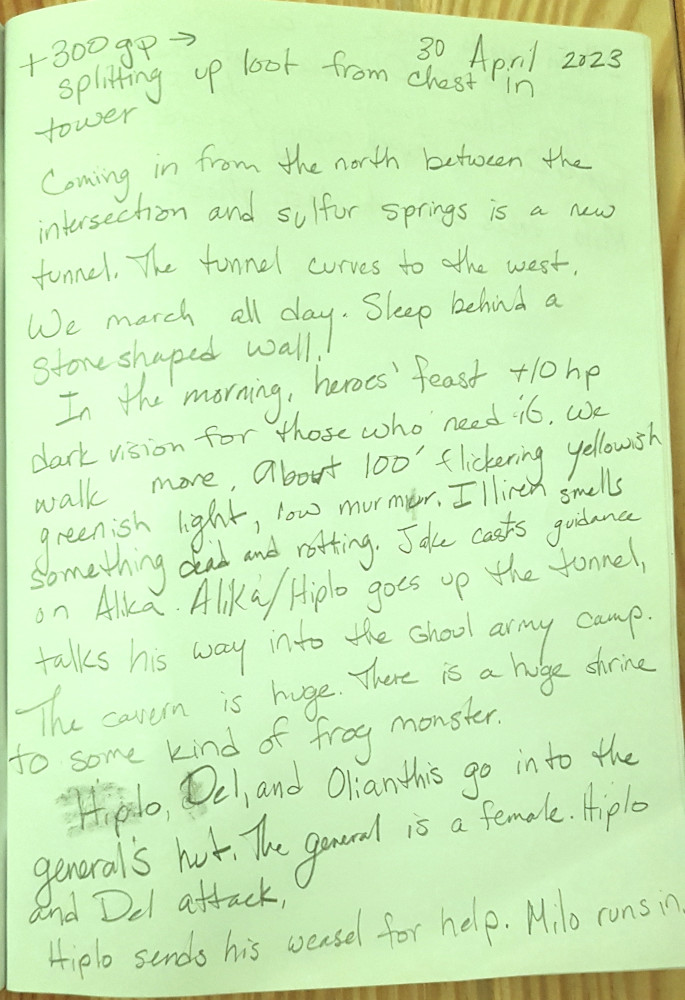 +300gp → 30 April 2023
splitting up loot from chest in
tower
Coming in from the north between the
intersection and sulfur springs is a new
tunnel. The tunnel curves to the west.
We march all day. Sleep behind a
stoneshaped wall.
In the morning, heroes' feast +10 hp
dark vision for those who need it. We
walk more. About 100' flickering yellowish
greenish light, low murmur. Illiren smells
something dead and rotting. Jake casts guidance
on Alika. Alika/Hiplo goes up the tunnel,
talks his way into the Ghoul army camp.
The cavern is huge. There is a huge shrine
to some kind of frog monster.
Hiplo, Del, and Olianthis go into the
general's hut. The general is a female. Hiplo
and Del attack,
Hiplo sends his weasel for help. Milo runs in.